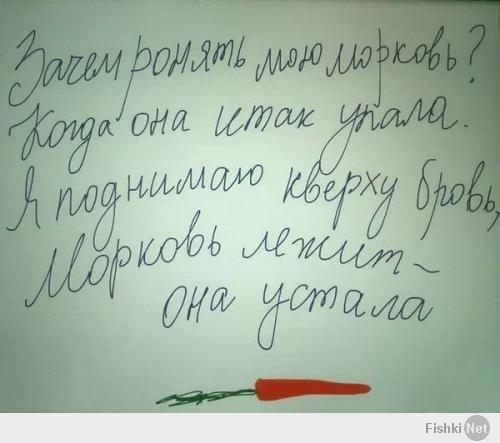 Зачем ронять мою морковь?
Когда она итак упала.
Я поднимаю кверху бровь,
Морковь лежит ~
она устала
Fishki Net